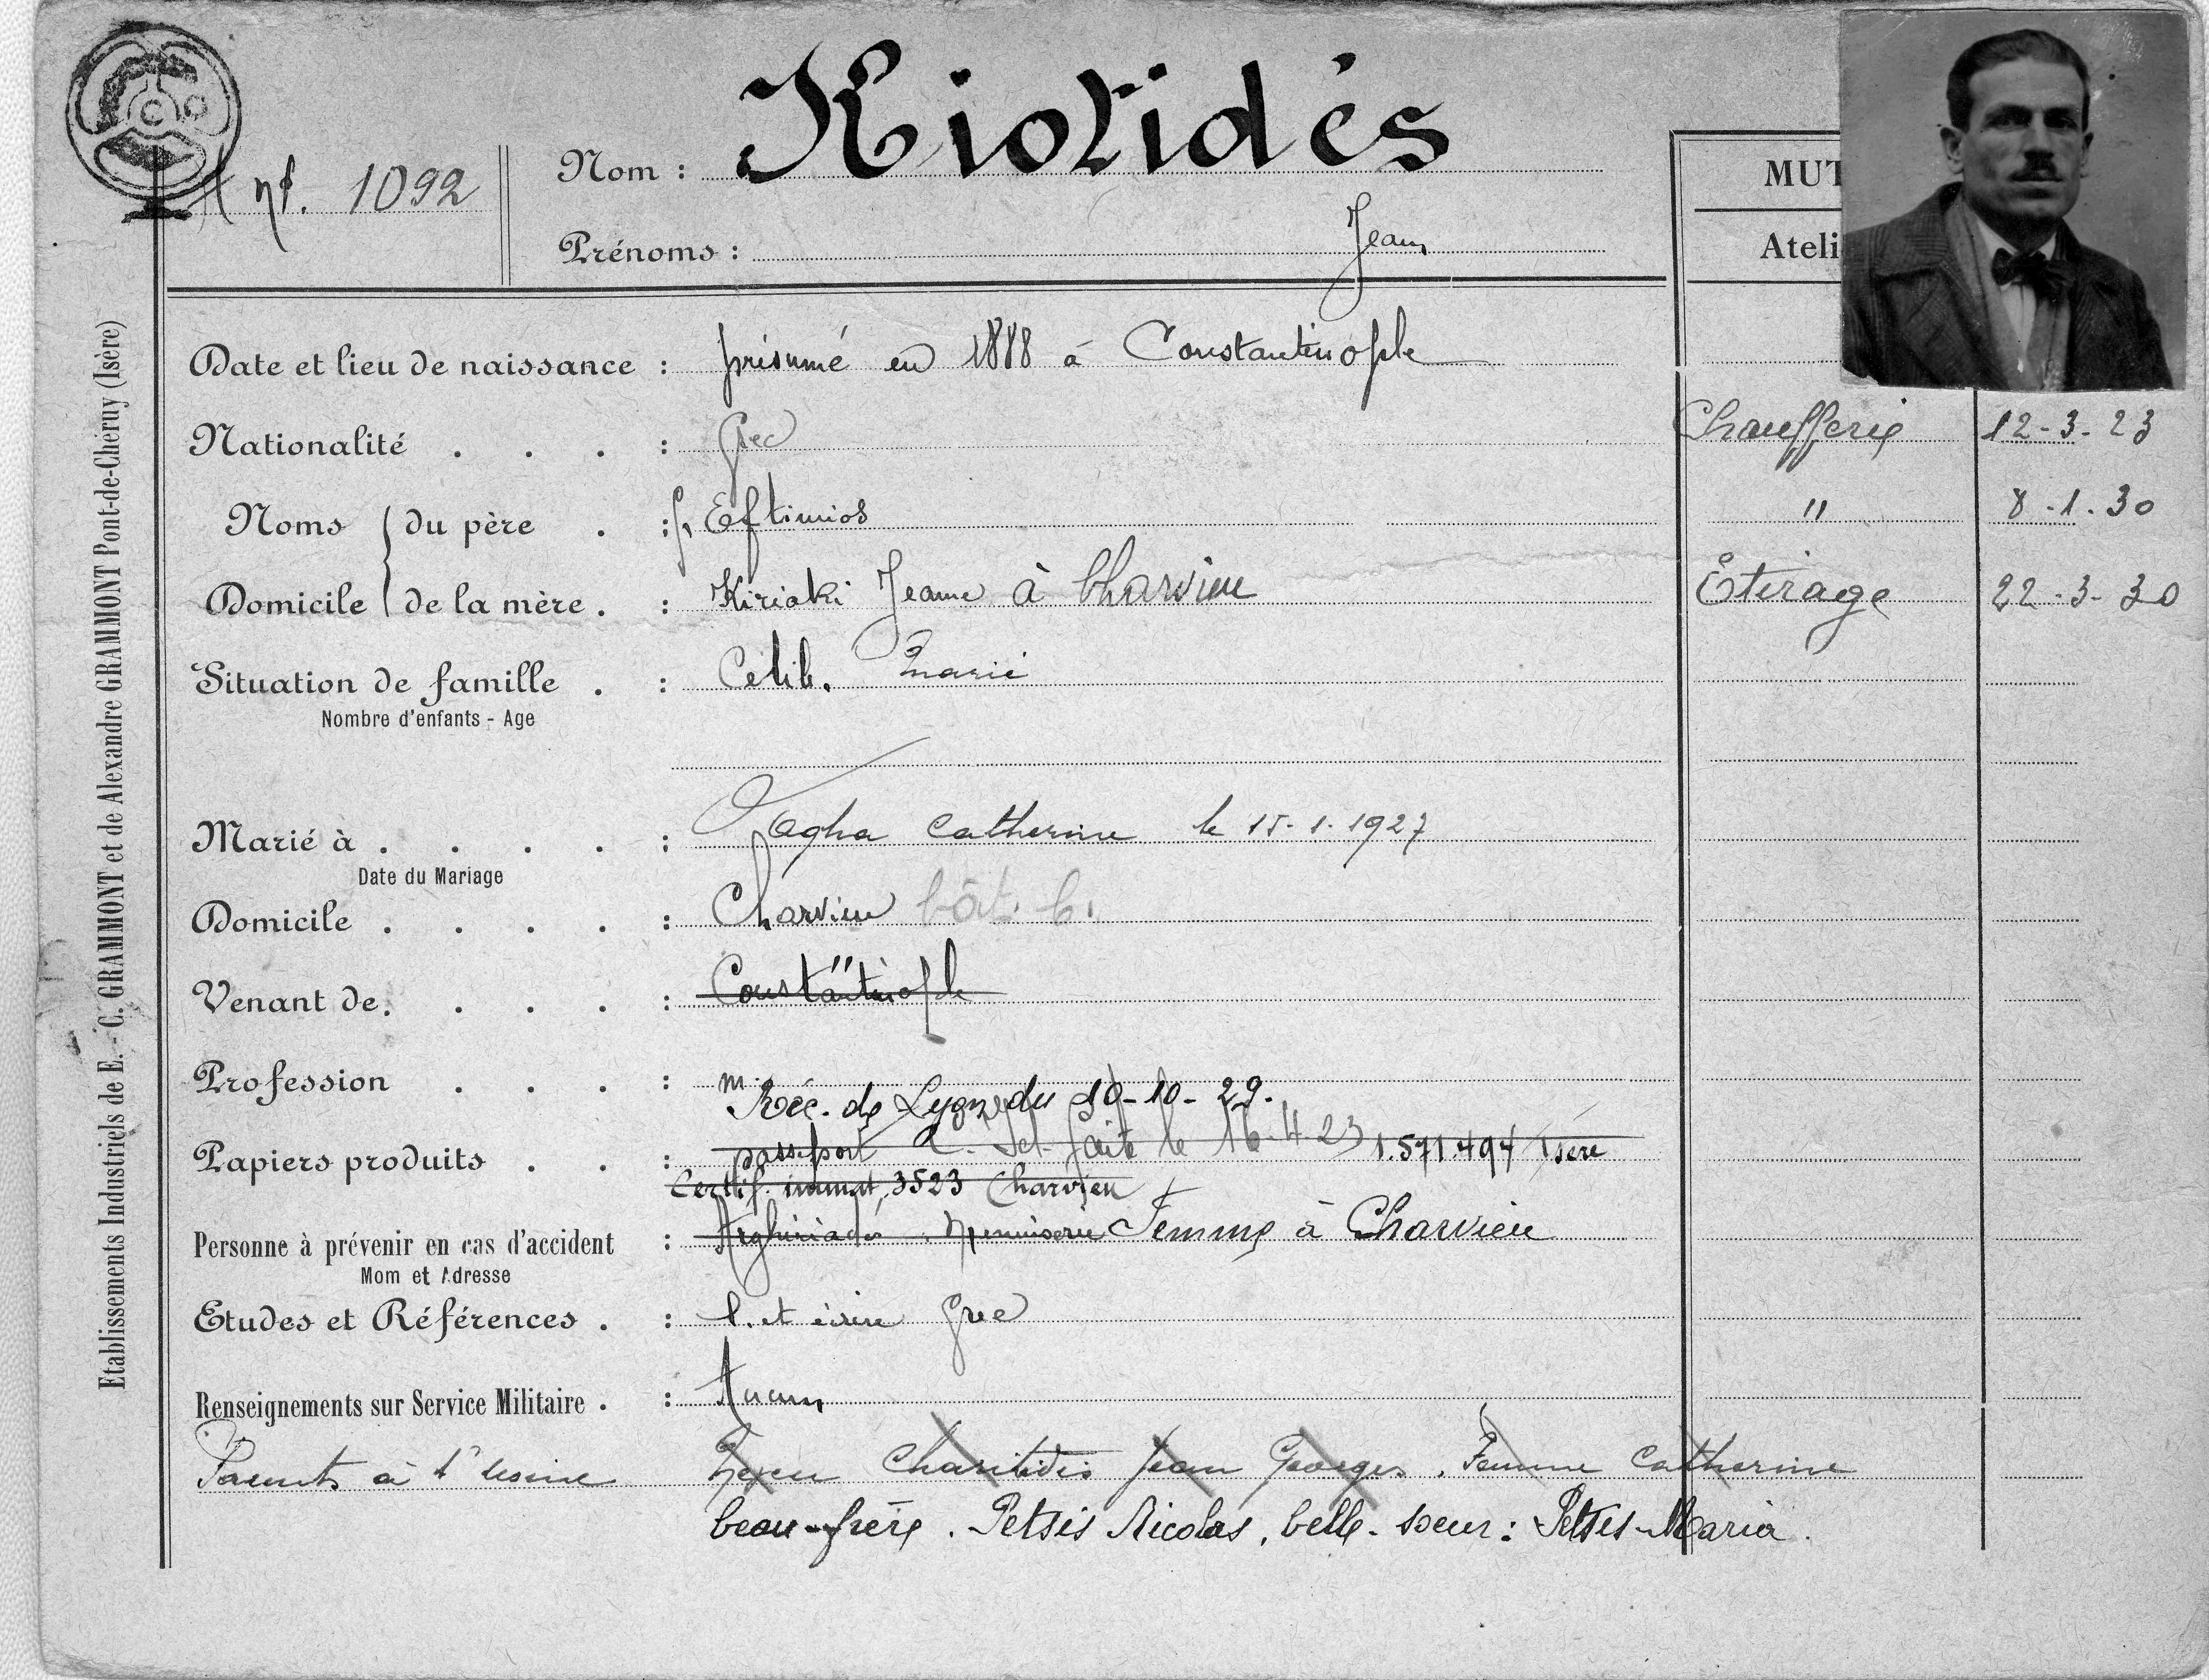 nº. 1092
Nom : Kiotidés
Prénoms : Jean
MUT
Ateli
Date et lieu de naissance : présumé en 1888 à Constantinople
Nationalité . . . : Grec
Chaufferie 12-3-23
Noms du père . : f. Eftimios
" 8-1-30
Domicile de la mère . : Kiriaki Jeanne à Charvieu
Etirage 22-3-30
Situation de famille . : Célib. Marié
Nombre d'enfants - Age
Marié à . . . . : Vagha Catherine le 15-1-1927
Date du Mariage
Domicile . . . . : Charvieu bât. b.
Venant de. . . . : Constantinople "
Profession . . . : m.
Réc. de Lyon du 10-10-29.
Papiers produits . . : passeport fait le 16-4-23 1.571.494 Isère
Certif. immat. 3523 Charvieu
Personne à prévenir en cas d'accident : Arghiriadés. Menuiserie Femme à Charvieu
Mom et Adresse
Etudes et Références . : l. et écrire Grec
Renseignements sur Service Militaire . : Aucun
Parents à l'usine Neveu Charitidis Jean Georges. Femme Catherine
beau-frère. Petsis Nicolas, belle-soeur : Petsis Maria.
Etablissements Industriels de E. - C. GRAMMONT et de Alexandre GRAMMONT Pont-de-Chéruy (Isère)